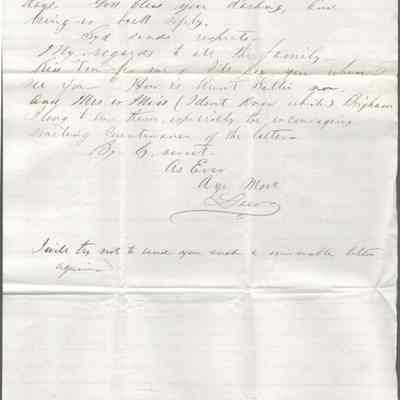 days. God bless you darling, and
bring us both safely.
Syd sends respects.
My regards to all the family
Kiss Tom for me & I'll see you when I
see you. How is Aunt Hallie now
And Mrs or Miss (I dont know which) Brigham
I long to see them, especially the encouraging
smiling Countenance of the latter
By
As Ever
Aye More
I will try not to send you such a miserable letter
again